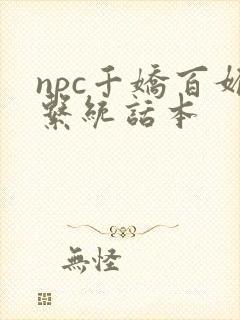 npc千嬌百媚
繫統話本
無怪